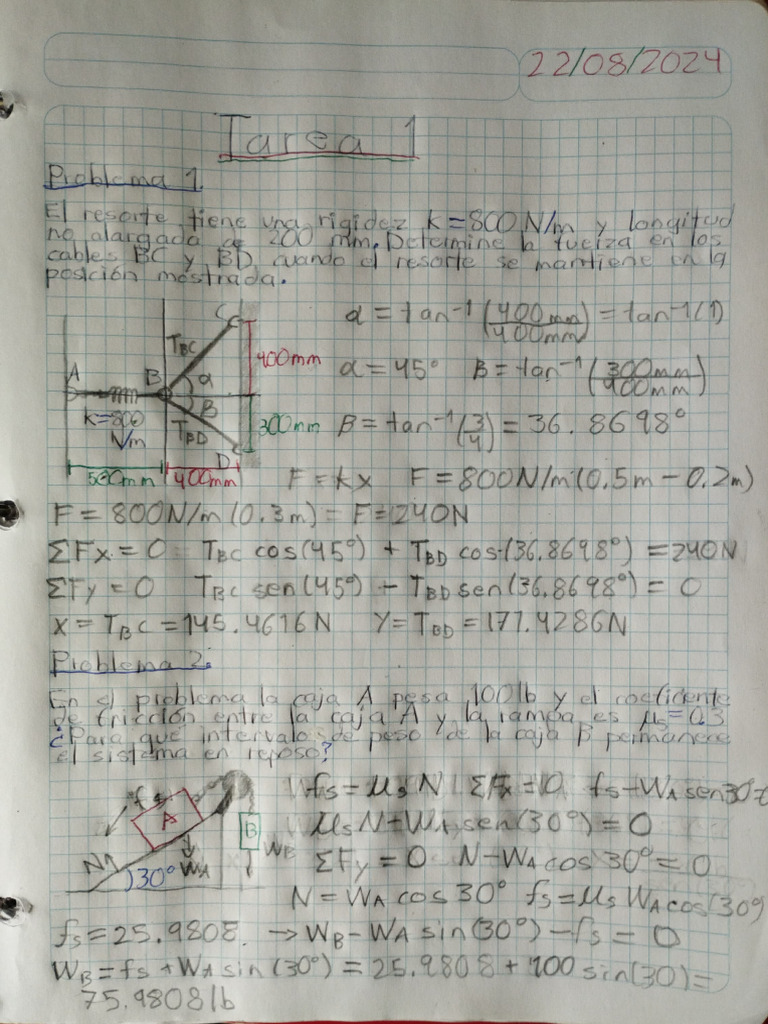 22/08/2024
Tarea 1
Problema 1.
El resorte tiene una rigidez k=800 N/m y longitud
no alargada de 200 mm. Determine la fuerza en los
cables BC y BD cuando el resorte se mantiene en la
posición mostrada.
C
T_BC
A B α
β
k=800 N/m
T_BD
D
400mm
300mm
500mm 400mm
α = tan⁻¹ (400mm/400mm) = tan⁻¹(1)
α = 45° β = tan⁻¹ (300mm/400mm)
β = tan⁻¹(3/4) = 36.8698°
F = kx F = 800N/m (0.5m - 0.2m)
F = 800N/m (0.3m) = F = 240N
ΣFx = 0 T_BC cos(45°) + T_BD cos(36.8698°) = 240N
ΣFy = 0 T_BC sen(45°) - T_BD sen(36.8698°) = 0
X = T_BC = 145.4616N Y = T_BD = 171.4286N
Problema 2:
En el problema la caja A pesa 100lb y el coeficiente
de fricción entre la caja A y la rampa es μs=0.3
¿Para qué intervalo de peso de la caja B permanece
el sistema en reposo?
fs
A
B
N
W_A
W_B
30°
fs = μs N ΣFx = 0 fs + W_A sen30°
μs N + W_A sen(30°) = 0
ΣFy = 0 N - W_A cos 30° = 0
N = W_A cos 30° fs = μs W_A cos(30°)
fs = 25.9808. → W_B - W_A sin(30°) - fs = 0
W_B = fs + W_A sin (30°) = 25.9808 + 100 sin(30) =
75.9808 lb